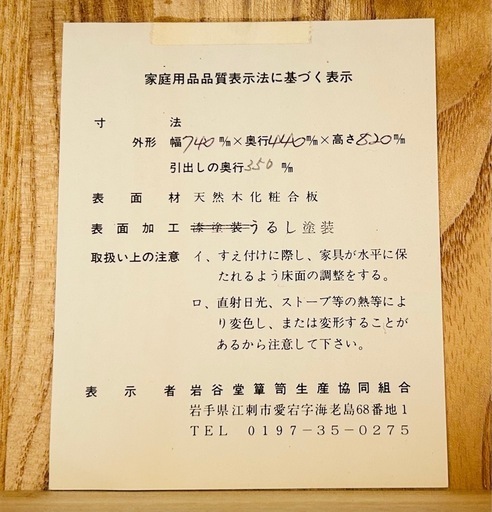 家庭用品品質表示法に基づく表示
寸法
外形 幅740m/m×奥行440m/m×高さ820m/m
引出しの奥行350m/m
表面材 天然木化粧合板
表面加工 漆塗装うるし塗装
取扱い上の注意 イ、すえ付けに際し、家具が水平に保
たれるよう床面の調整をする。
ロ、直射日光、ストーブ等の熱等によ
り変色し、または変形することが
あるから注意して下さい。
表示者 岩谷堂簞笥生産協同組合
岩手県江刺市愛宕字海老島68番地1
TEL 0197-35-0275